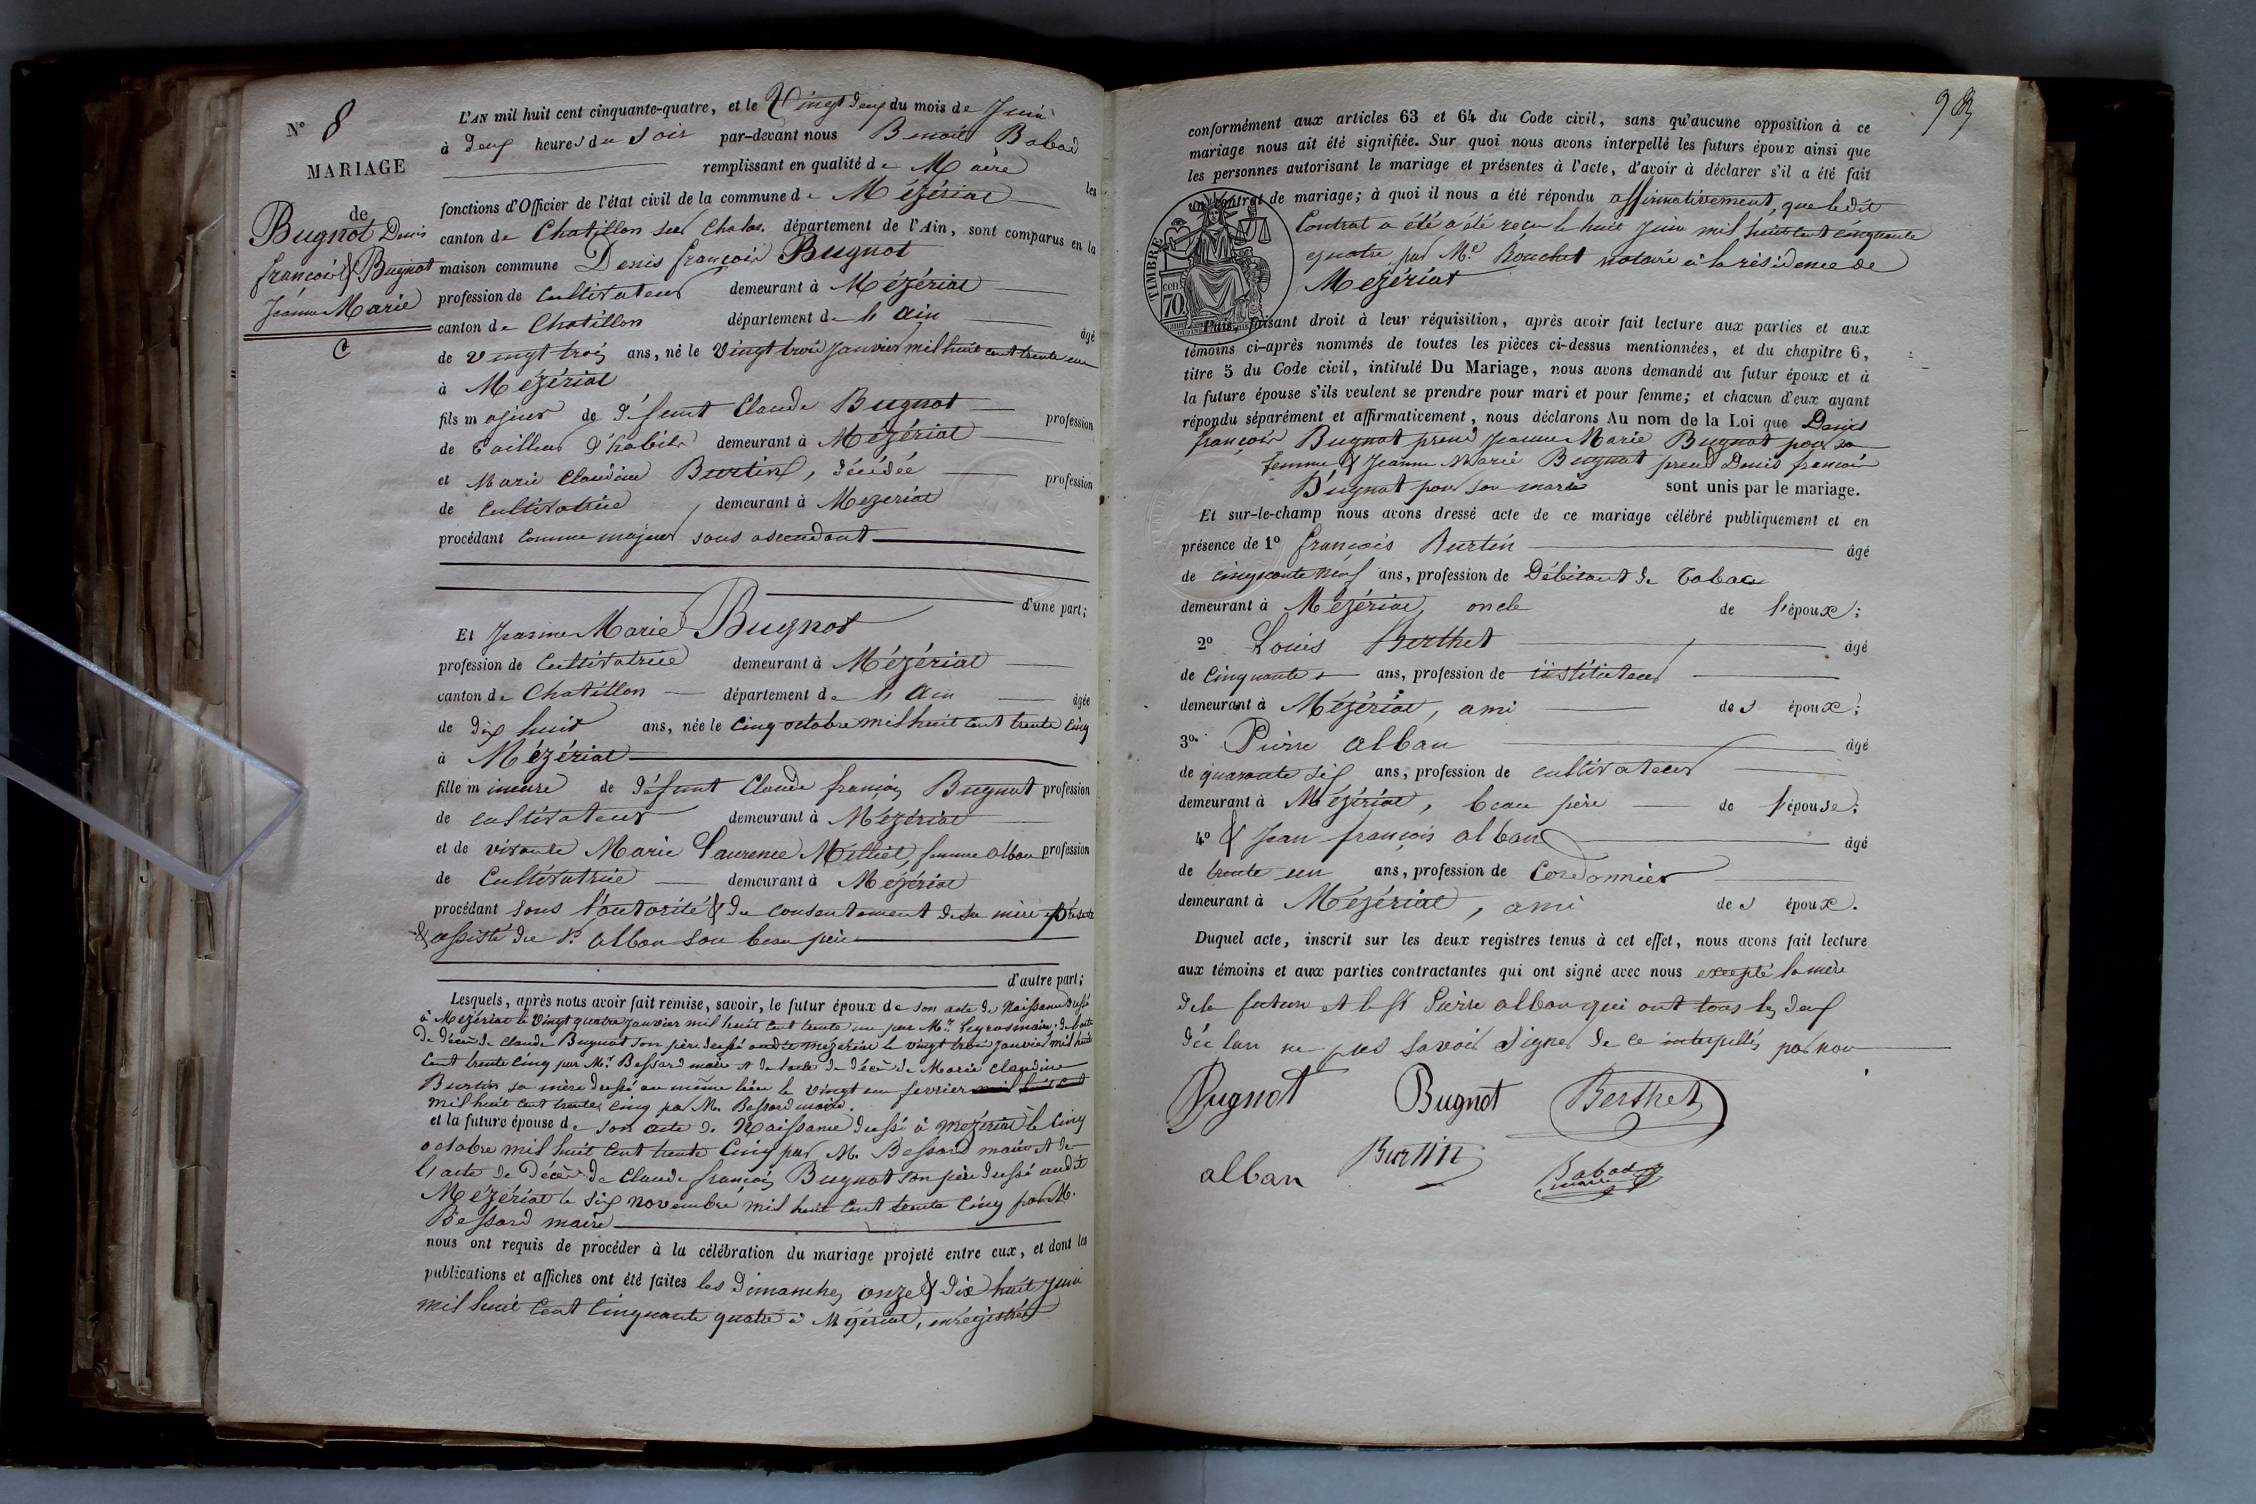 N° 8
MARIAGE
de
Bugnot Denis
françois & Bugnot
Jeanne Marie
C
L'AN mil huit cent cinquante-quatre, et le Vingt deux du mois de Juin
à deux heures du soir par-devant nous Benoit Babad
remplissant en qualité de Maire les
fonctions d'Officier de l'état civil de la commune de Mézériat
canton de Chatillon sur Chalar. département de l'Ain, sont comparus en la
maison commune Denis françois Bugnot
profession de Cultivateur demeurant à Mézériat
canton de Chatillon département de l'ain âgé
de vingt trois ans, né le Vingt trois janvier mil huit cent trente un
à Mézériat
fils majeur de défunt Claude Bugnot profession
de Tailleur d'habits demeurant à Mézériat
et Marie Claudine Burtin, décédée profession
de Cultivatrice demeurant à Mezeriat
procédant Comme majeur sans ascendant
d'une part;
Et Jeanne Marie Bugnot
profession de Cultivatrice demeurant à Mézériat
canton de Chatillon département de l'Ain âgée
de dix huit ans, née le Cinq octobre mil huit cent trente cinq
à Mézériat
fille mineure de défunt Claude françois Bugnot profession
de cultivateur demeurant à Mézériat
et de vivante Marie Laurence Milliet, femme alban profession
de Cultivatrice demeurant à Mézériat
procédant sous l'autorité & du consentement de sa mère présente
& assisté du Sr. alban son beau père
d'autre part;
Lesquels, après nous avoir fait remise, savoir, le futur époux de son acte de Naissance dressé
à Mézériat le Vingt quatre janvier mil huit cent trente un par Mr. Leyros maire; de l'acte
de décès de Claude Bugnot son père dressé audit mezeriat le vingt trois janvier mil huit
Cent trente Cinq par Mr. Bessard maire et de l'acte de décès de Marie Claudine
Burtin sa mère dressé au même lieu le vingt un fevrier mil huit cent
mil huit cent trente cinq par M. Bessard maire.
et la future épouse de son acte de Naissance dressé à mezeriat le Cinq
octobre mil huit Cent trente Cinq par M. Bessard maire et de
l'acte de Décès de Claude françois Bugnot son père dressé audit
Mézériat le Six novembre mil huit Cent trente Cinq par M.
Bessard maire
nous ont requis de procéder à la célébration du mariage projeté entre eux, et dont les
publications et affiches ont été faites les dimanches onze & dix huit juin
mil huit Cent Cinquante quatre à Mézériat, enregistrés
conformément aux articles 63 et 64 du Code civil, sans qu'aucune opposition à ce
mariage nous ait été signifiée. Sur quoi nous avons interpellé les futurs époux ainsi que
les personnes autorisant le mariage et présentes à l'acte, d'avoir à déclarer s'il a été fait
un contrat de mariage; à quoi il nous a été répondu affirmativement, que ledit
Contrat a été a été reçu le huit Juin mil huit cent cinquante
quatre par Me. Bouchet notaire à la résidence de
Mezériat
TIMBRE
cent
70
Puis, faisant droit à leur réquisition, après avoir fait lecture aux parties et aux
témoins ci-après nommés de toutes les pièces ci-dessus mentionnées, et du chapitre 6,
titre 5 du Code civil, intitulé Du Mariage, nous avons demandé au futur époux et à
la future épouse s'ils veulent se prendre pour mari et pour femme; et chacun d'eux ayant
répondu séparément et affirmativement, nous déclarons Au nom de la Loi que Denis
françois Bugnot prend Jeanne Marie Bugnot pour sa
femme & Jeanne Marie Bugnot prend Denis françois
Bugnot pour son mari sont unis par le mariage.
Et sur-le-champ nous avons dressé acte de ce mariage célébré publiquement et en
présence de 1° françois Burtin âgé
de cinquante neuf ans, profession de Débitant de Tabac
demeurant à Mézériat, oncle de l'époux;
2° Louis Berthet âgé
de Cinquante ans, profession de instituteur
demeurant à Mézériat, ami des époux;
3° Pierre alban âgé
de quarante six ans, profession de cultivateur
demeurant à Mézériat, beau père de l'épouse;
4° & Jean françois alban âgé
de trente un ans, profession de Cordonnier
demeurant à Mézériat, ami des époux.
Duquel acte, inscrit sur les deux registres tenus à cet effet, nous avons fait lecture
aux témoins et aux parties contractantes qui ont signé avec nous excepté la mère
de la future et le Sr Pierre alban qui ont tous les deux
déclaré ne pas savoir signer de ce interpellés par nous
Bugnot Bugnot Berthet
alban Burtin Babad
maire